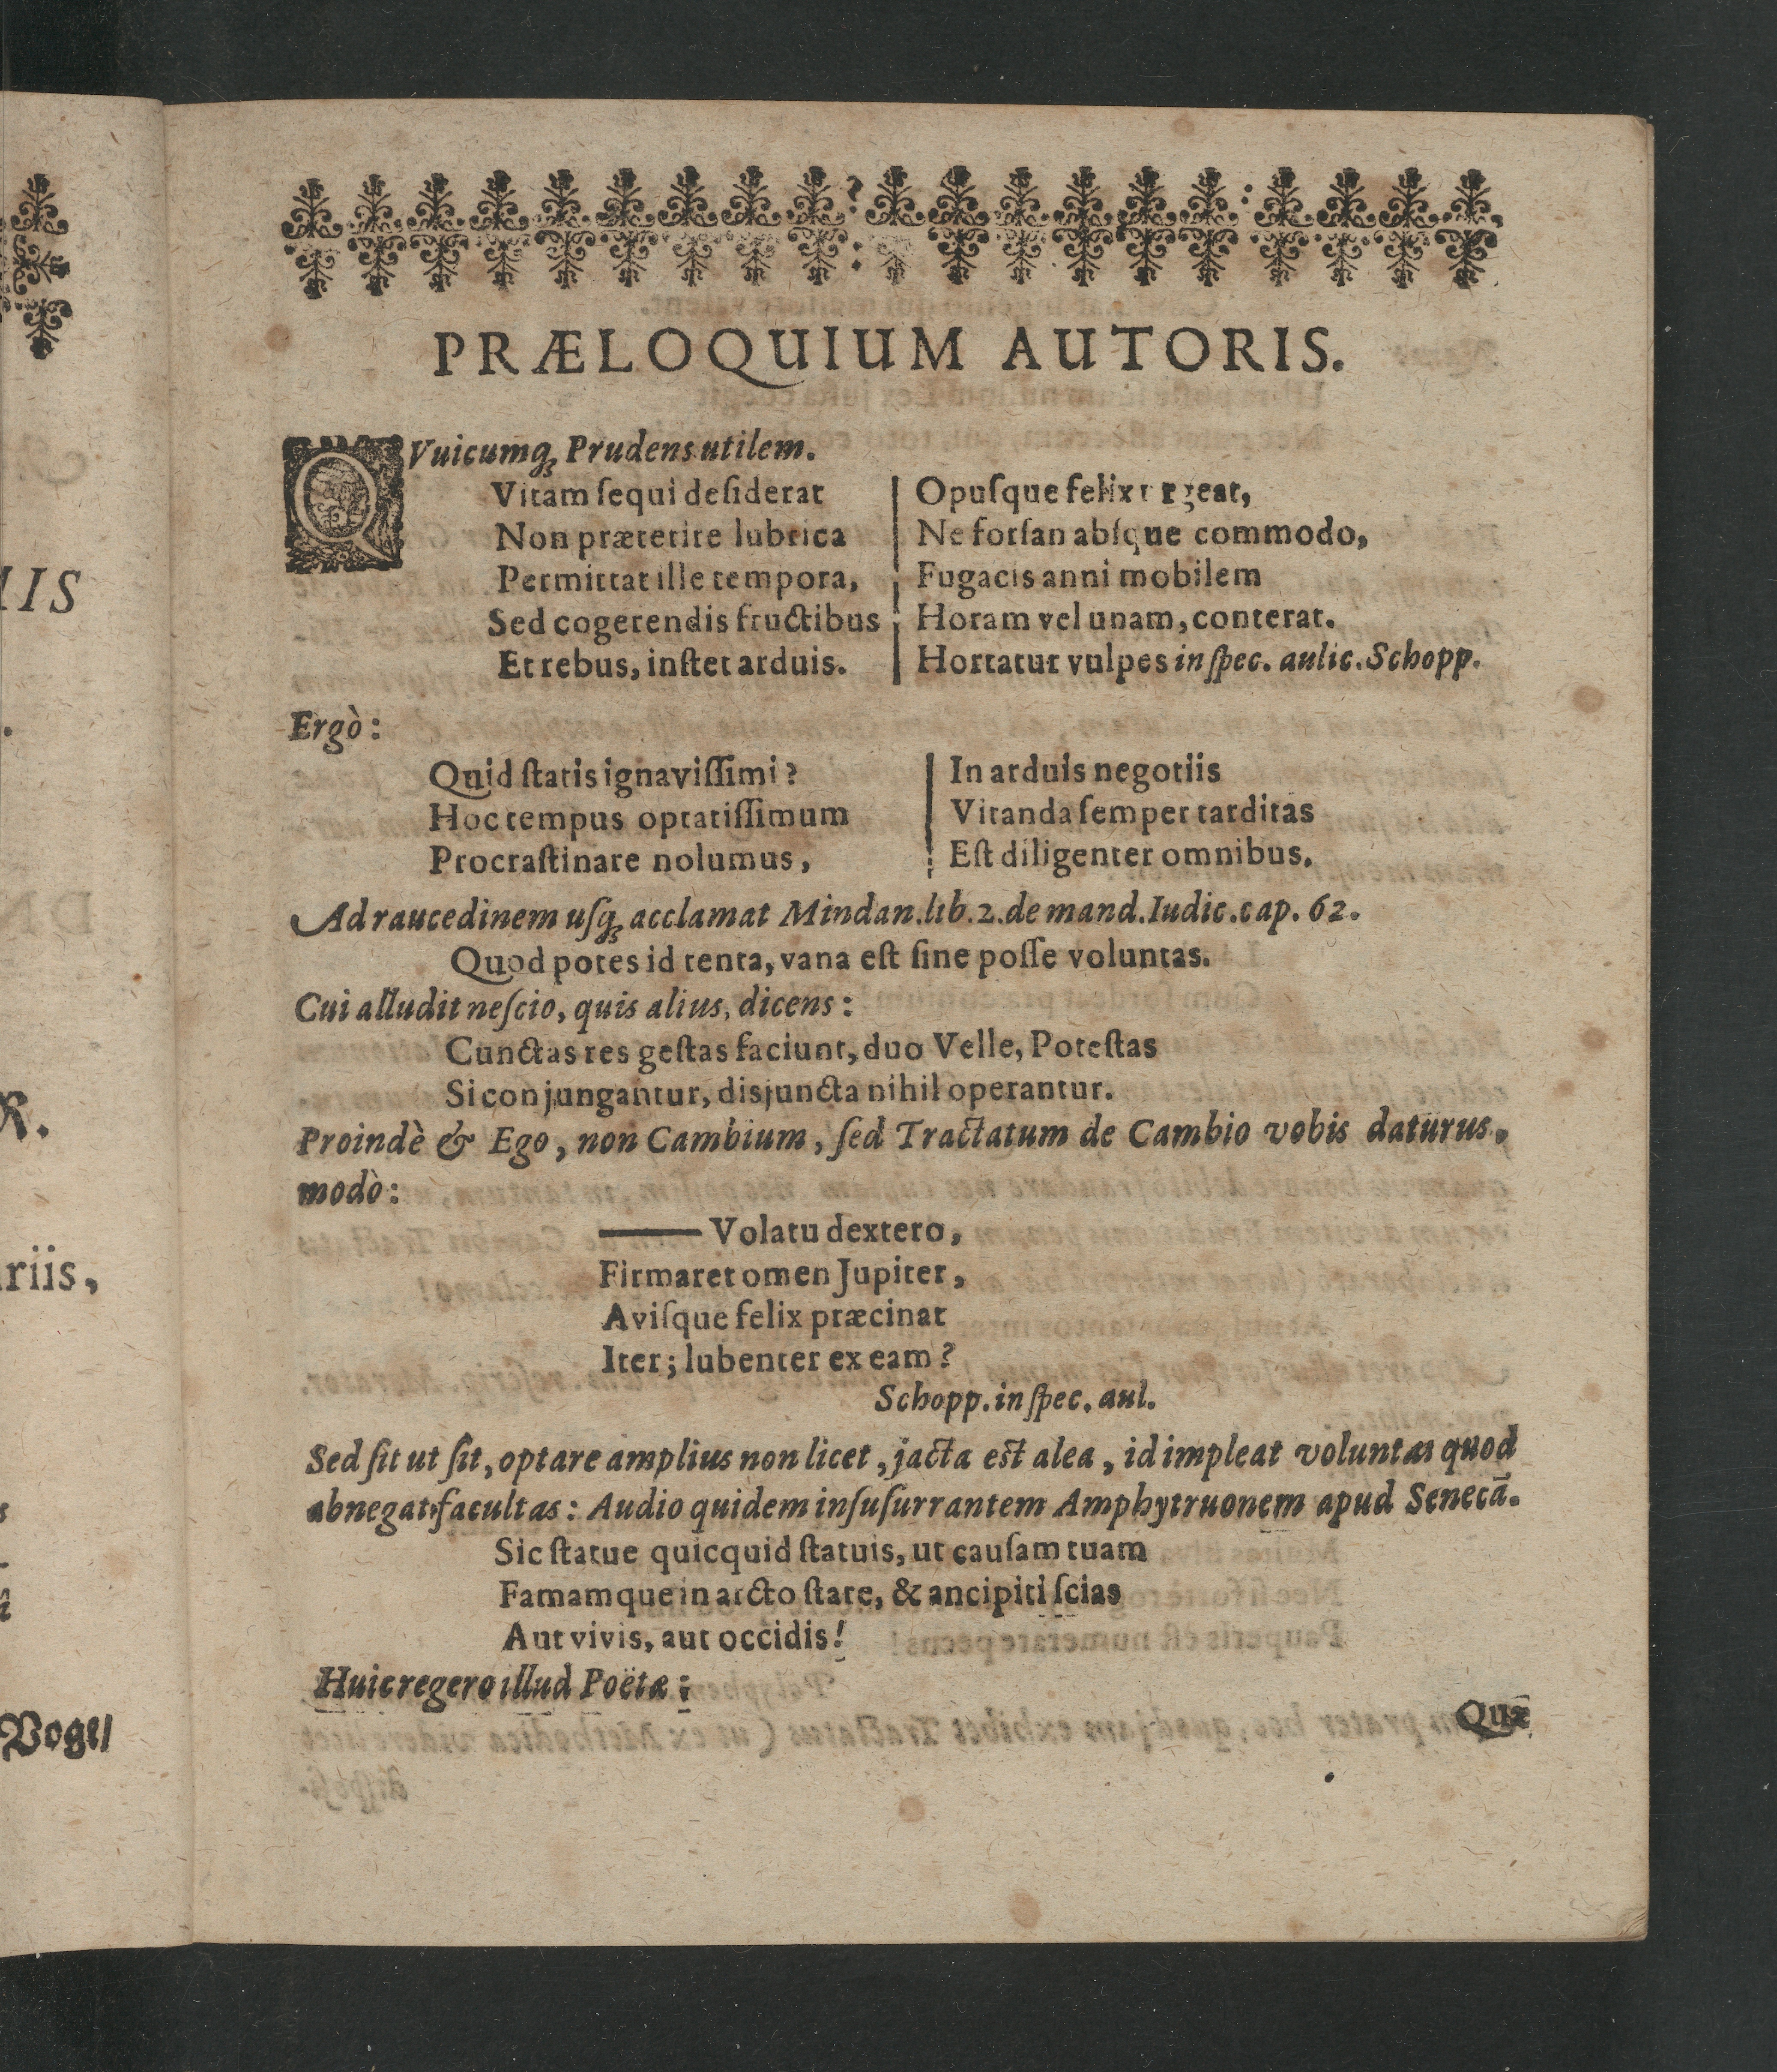 PRÆLOQUIUM AUTORIS.
QVuicumq́ꝫ Prudens utilem.
Vitam ſequi deſiderat
Non præterire lubrica
Permittat ille tempora,
Sed cogerendis fructibus
Et rebus, inſtet arduis.
Opuſque felix urgeat,
Ne forſan abſque commodo,
Fugacis anni mobilem
Horam vel unam, conterat.
Hortatur vulpes in ſpec. aulic. Schopp.
Ergò:
Quid ſtatis ignaviſſimi?
Hoc tempus optatiſſimum
Procraſtinare nolumus,
In arduis negotiis
Vitanda ſemper tarditas
Eſt diligenter omnibus.
Ad raucedinem uſq́ꝫ acclamat Mindan. lib. 2. de mand. Iudic. cap. 62.
Quod potes id tenta, vana eſt ſine poſſe voluntas.
Cui alludit neſcio, quis alius, dicens:
Cunctas res geſtas faciunt, duo Velle, Poteſtas
Si conjungantur, disjuncta nihil operantur.
Proindè & Ego, non Cambium, ſed Tractatum de Cambio vobis daturus,
modò:
—— Volatu dextero,
Firmaret omen Jupiter,
Aviſque felix præcinat
Iter; lubenter ex eam?
Schopp. in ſpec. aul.
Sed ſit ut ſit, optare amplius non licet, jacta eſt alea, id impleat voluntas quod
abnegat facultas: Audio quidem inſuſurrantem Amphytruonem apud Senecā.
Sic ſtatue quicquid ſtatuis, ut cauſam tuam
Famamque in arcto ſtare, & ancipiti ſcias
Aut vivis, aut occidis!
Huic regero illud Poëtæ:
Quæ
IIS
R.
riis,
Vogel